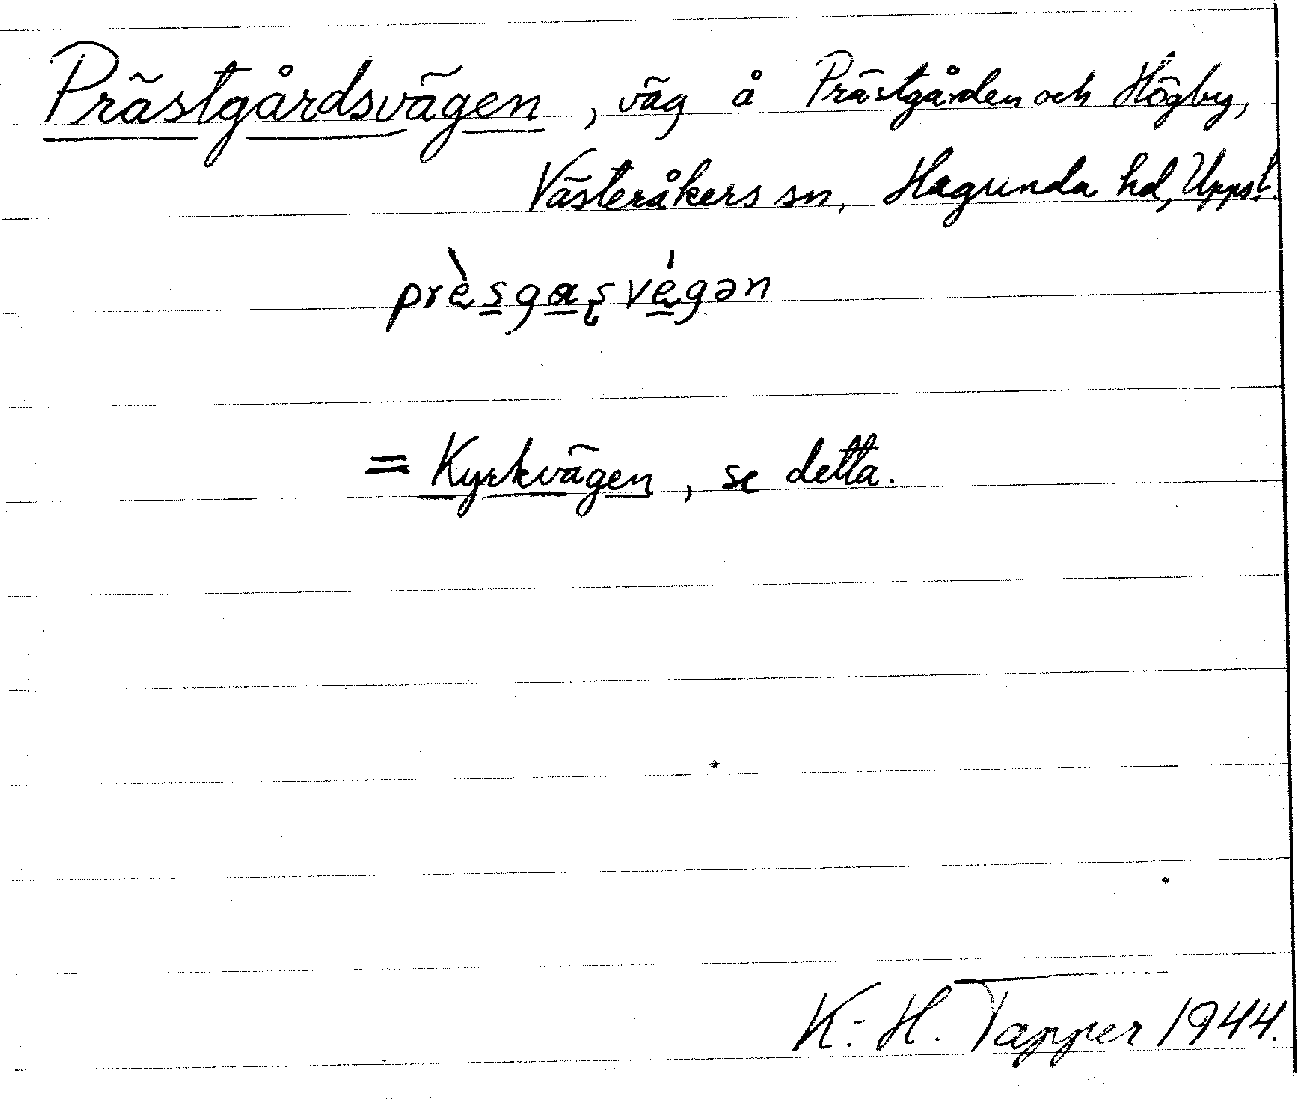 Prästgårdsvägen, väg å Prästgården och Högby,
Västeråkers sn, Hagunda hd, Uppsl.
prèsgaʂvégən
= Kyrkvägen, se detta.
K.-H. Tapper 1944.